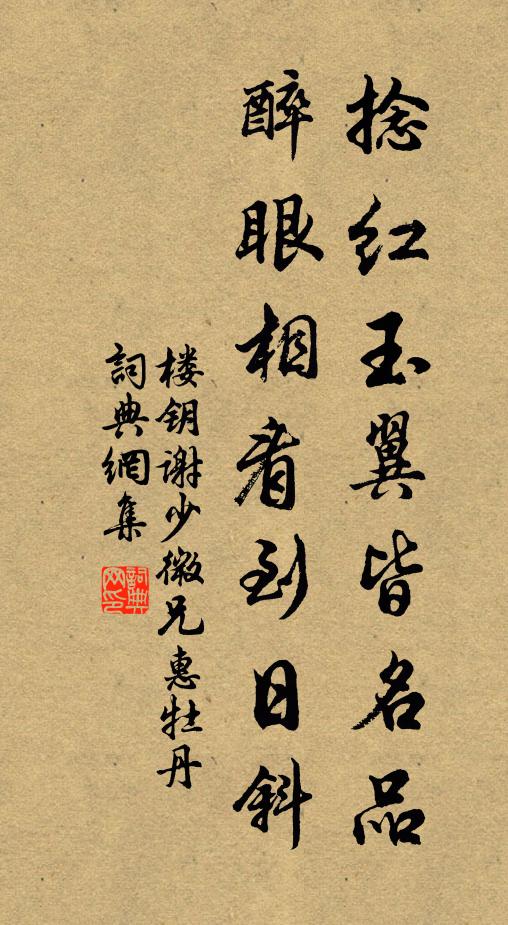 捻红玉翼皆名品
醉眼相看到日斜
楼钥谢少微兄惠牡丹
詞典網集
詞典
网印